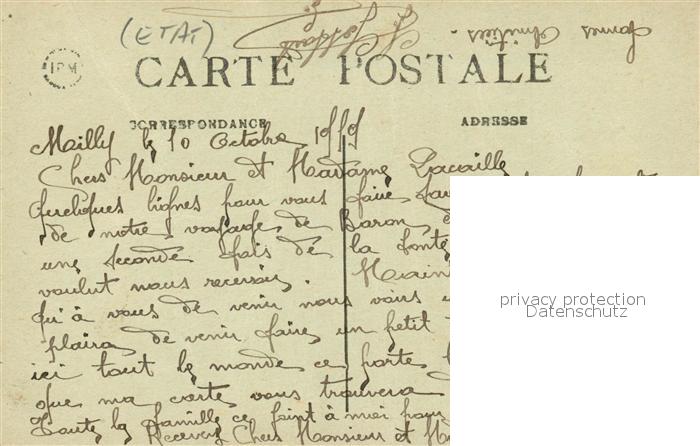 (ETAT)
CARTE POSTALE
CORRESPONDANCE
ADRESSE
Mailly le 10 Octobre 1919
Chers Monsieur et Madame Lacaille
Quelques lignes pour vous faire
de notre voyage de Baron
une seconde fois de la
voulut nous recevoir. Main
Qu'à vous de venir nous voir
plaira de venir faire un petit
ici tout le monde ce porte
que ma carte vous trouvera
Toute la famille ce joint à moi pour
Recevez Chers Monsieur et
privacy protection
Datenschutz